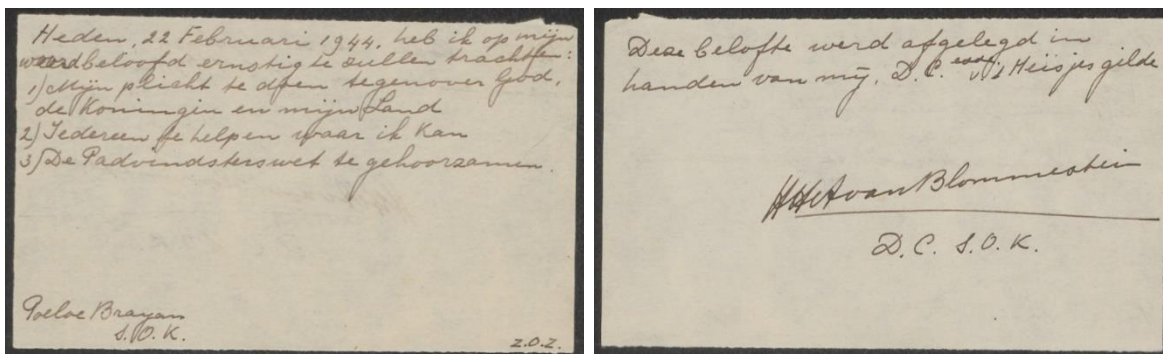 Heden, 22 Februari 1944, heb ik op mijn
woord beloofd ernstig te zullen trachten:
1) Mijn plicht te doen tegenover God,
de Koningin en mijn Land
2) Iedereen te helpen waar ik kan
3) De Padvindsterswet te gehoorzamen.
Poeloe Brayan
S.O.K.
z.o.z.
Deze belofte werd afgelegd in
handen van mij, D.C. Meisjesgilde
van Blommestein
D.C. S.O.K.